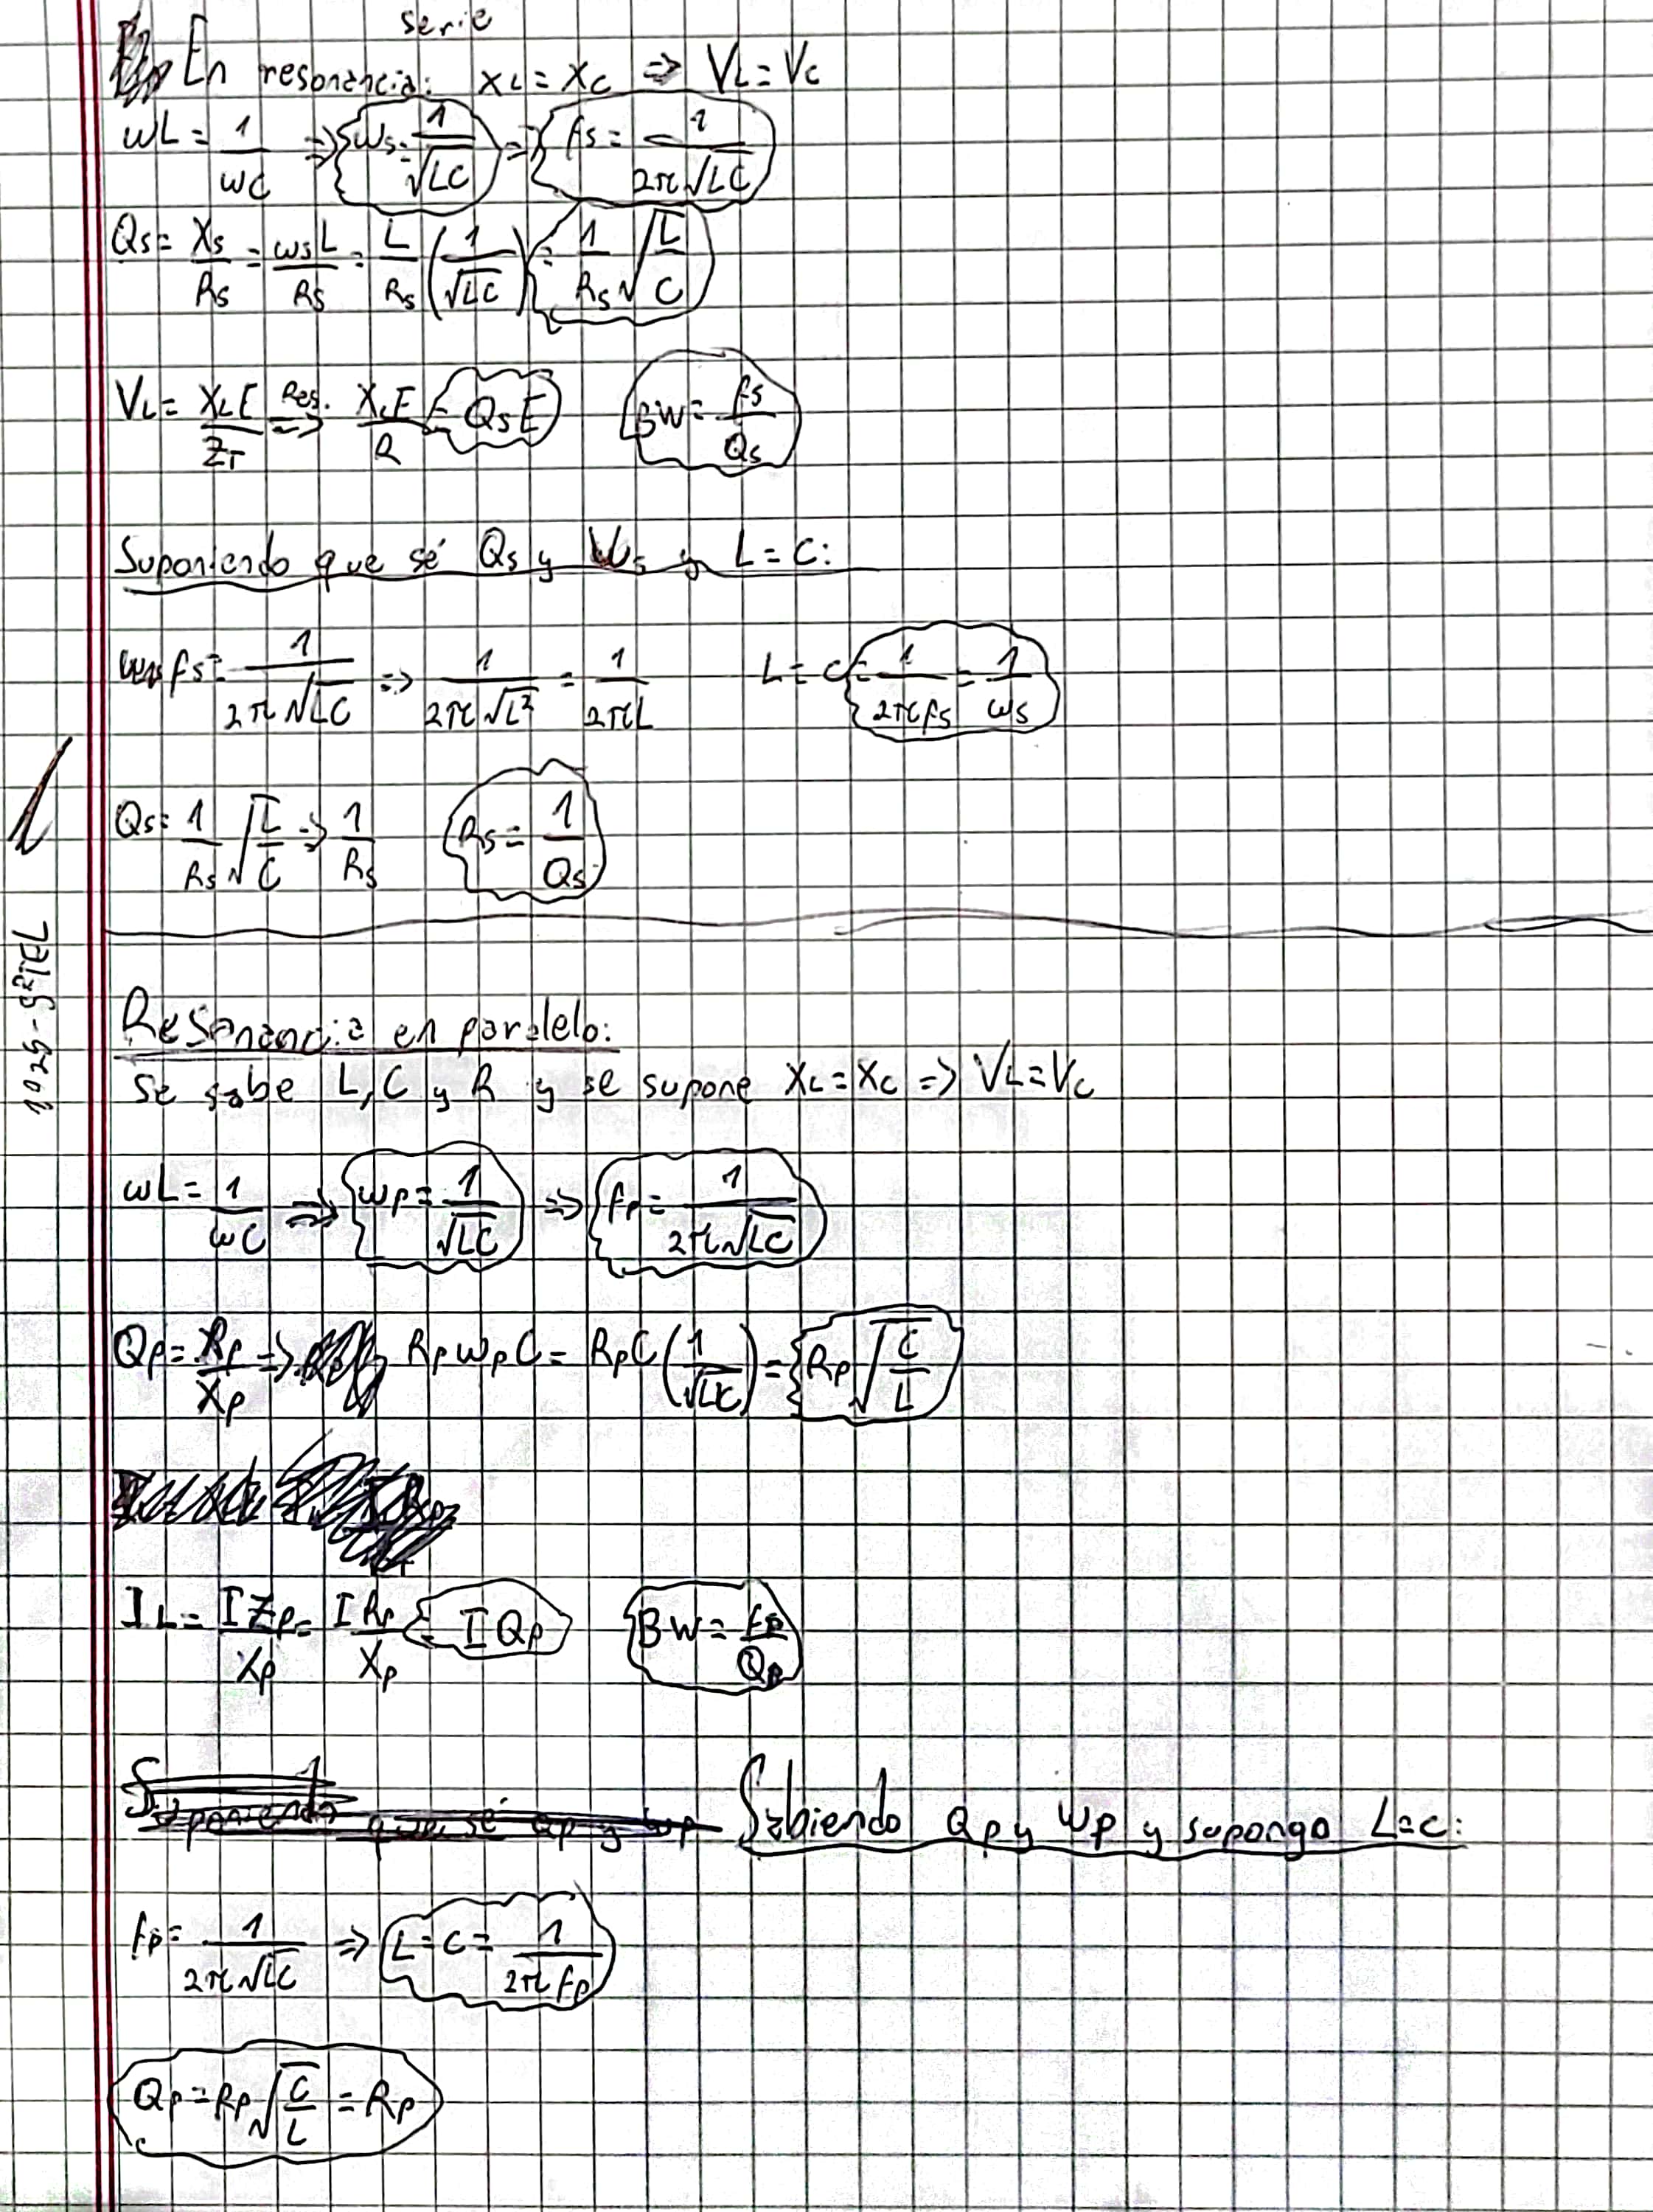 serie
En resonancia: XL = XC => VL = VC
ωL = 1/ωC => ωs = 1/√LC => fs = 1/2π√LC
Qs = Xs/Rs = ωsL/Rs = L/Rs (1/√LC) = 1/Rs √L/C
VL = XLE/ZT Res. => XLE/R = QsE BW = fs/Qs
Suponiendo que sé Qs y Ws y L = C:
fs = 1/2π√LC => 1/2π√L² = 1/2πL L = C = 1/2πfs = 1/ωs
Qs = 1/Rs √L/C => 1/Rs Rs = 1/Qs
Resonancia en paralelo:
se sabe L, C y R y se supone XL = XC => VL = VC
ωL = 1/ωC => ωp = 1/√LC => fp = 1/2π√LC
Qp = Rp/Xp => RpωpC = RpC (1/√LC) = Rp √C/L
IL = IZp/Xp = IRp/Xp = IQp BW = fp/Qp
Suponiendo que sé Qp y ωp Sabiendo Qp y Wp y supongo L=C:
fp = 1/2π√LC => L = C = 1/2πfp
Qp = Rp √C/L = Rp